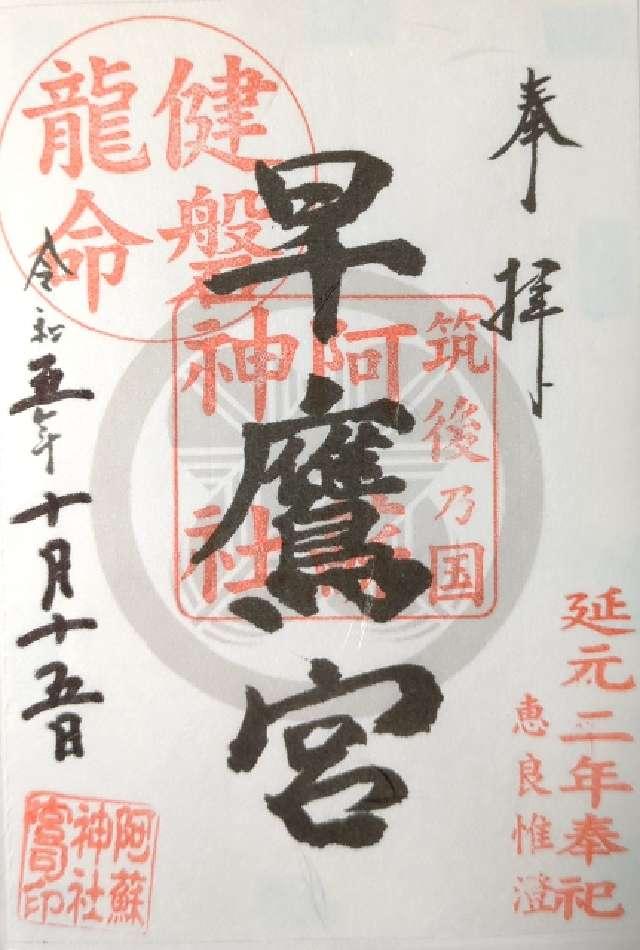 奉拝
早鷹宮
筑後乃国
阿蘇
神社
健磐
龍命
延元二年奉祀
恵良惟澄
令和五年十月十五日
阿蘇
神社
寳印